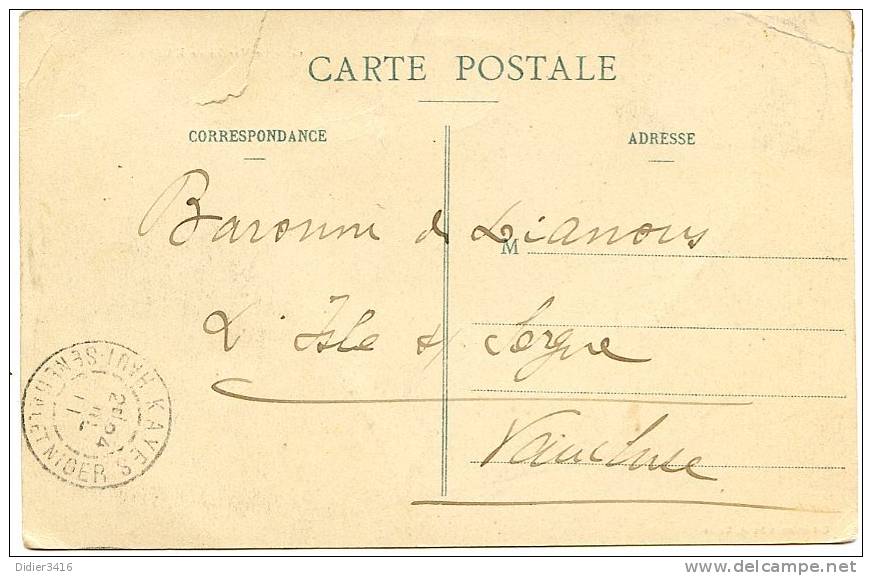 CARTE POSTALE
CORRESPONDANCE
ADRESSE
Baronne de Lianous
M
L'Isle s/ Sorgue
Vaucluse
KAYES
HAUT-SENEGAL ET NIGER
Didier3416
delcampe.net